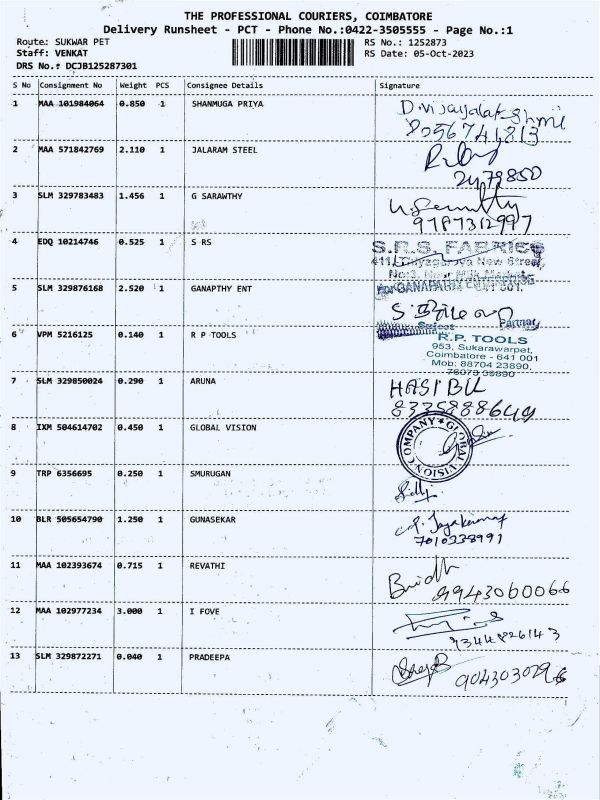 THE PROFESSIONAL COURIERS, COIMBATORE
Delivery Runsheet - PCT - Phone No.:0422-3505555 - Page No.:1
Route: SUKWAR PET
RS No.: 1252873
Staff: VENKAT
RS Date: 05-Oct-2023
DRS No.: DCJB125287301
S No Consignment No Weight PCS Consignee Details Signature
1 MAA 101984064 0.850 1 SHANMUGA PRIYA
D.vijayalakshmi
8056741813
2 MAA 571842769 2.110 1 JALARAM STEEL
2479850
3 SLM 329783483 1.456 1 G SARAWTHY
9787312997
4 EDQ 10214746 0.525 1 S RS
S.R.S. FABRICS
411, New Street,
5 SLM 329876168 2.520 1 GANAPTHY ENT
Partner
6 VPM 5216125 0.140 1 R P TOOLS
R.P. TOOLS
953, Sukarawarpet,
Coimbatore - 641 001
Mob: 88704 23890,
7 SLM 329850024 0.290 1 ARUNA
HASIBUL
8 IXM 504614702 0.450 1 GLOBAL VISION
GLOBAL VISION COMPANY
9 TRP 6356695 0.250 1 SMURUGAN
10 BLR 505654790 1.250 1 GUNASEKAR
7010338991
11 MAA 102393674 0.715 1 REVATHI
9943060066
12 MAA 102977234 3.000 1 I FOVE
9344826143
13 SLM 329872271 0.040 1 PRADEEPA
9043030296